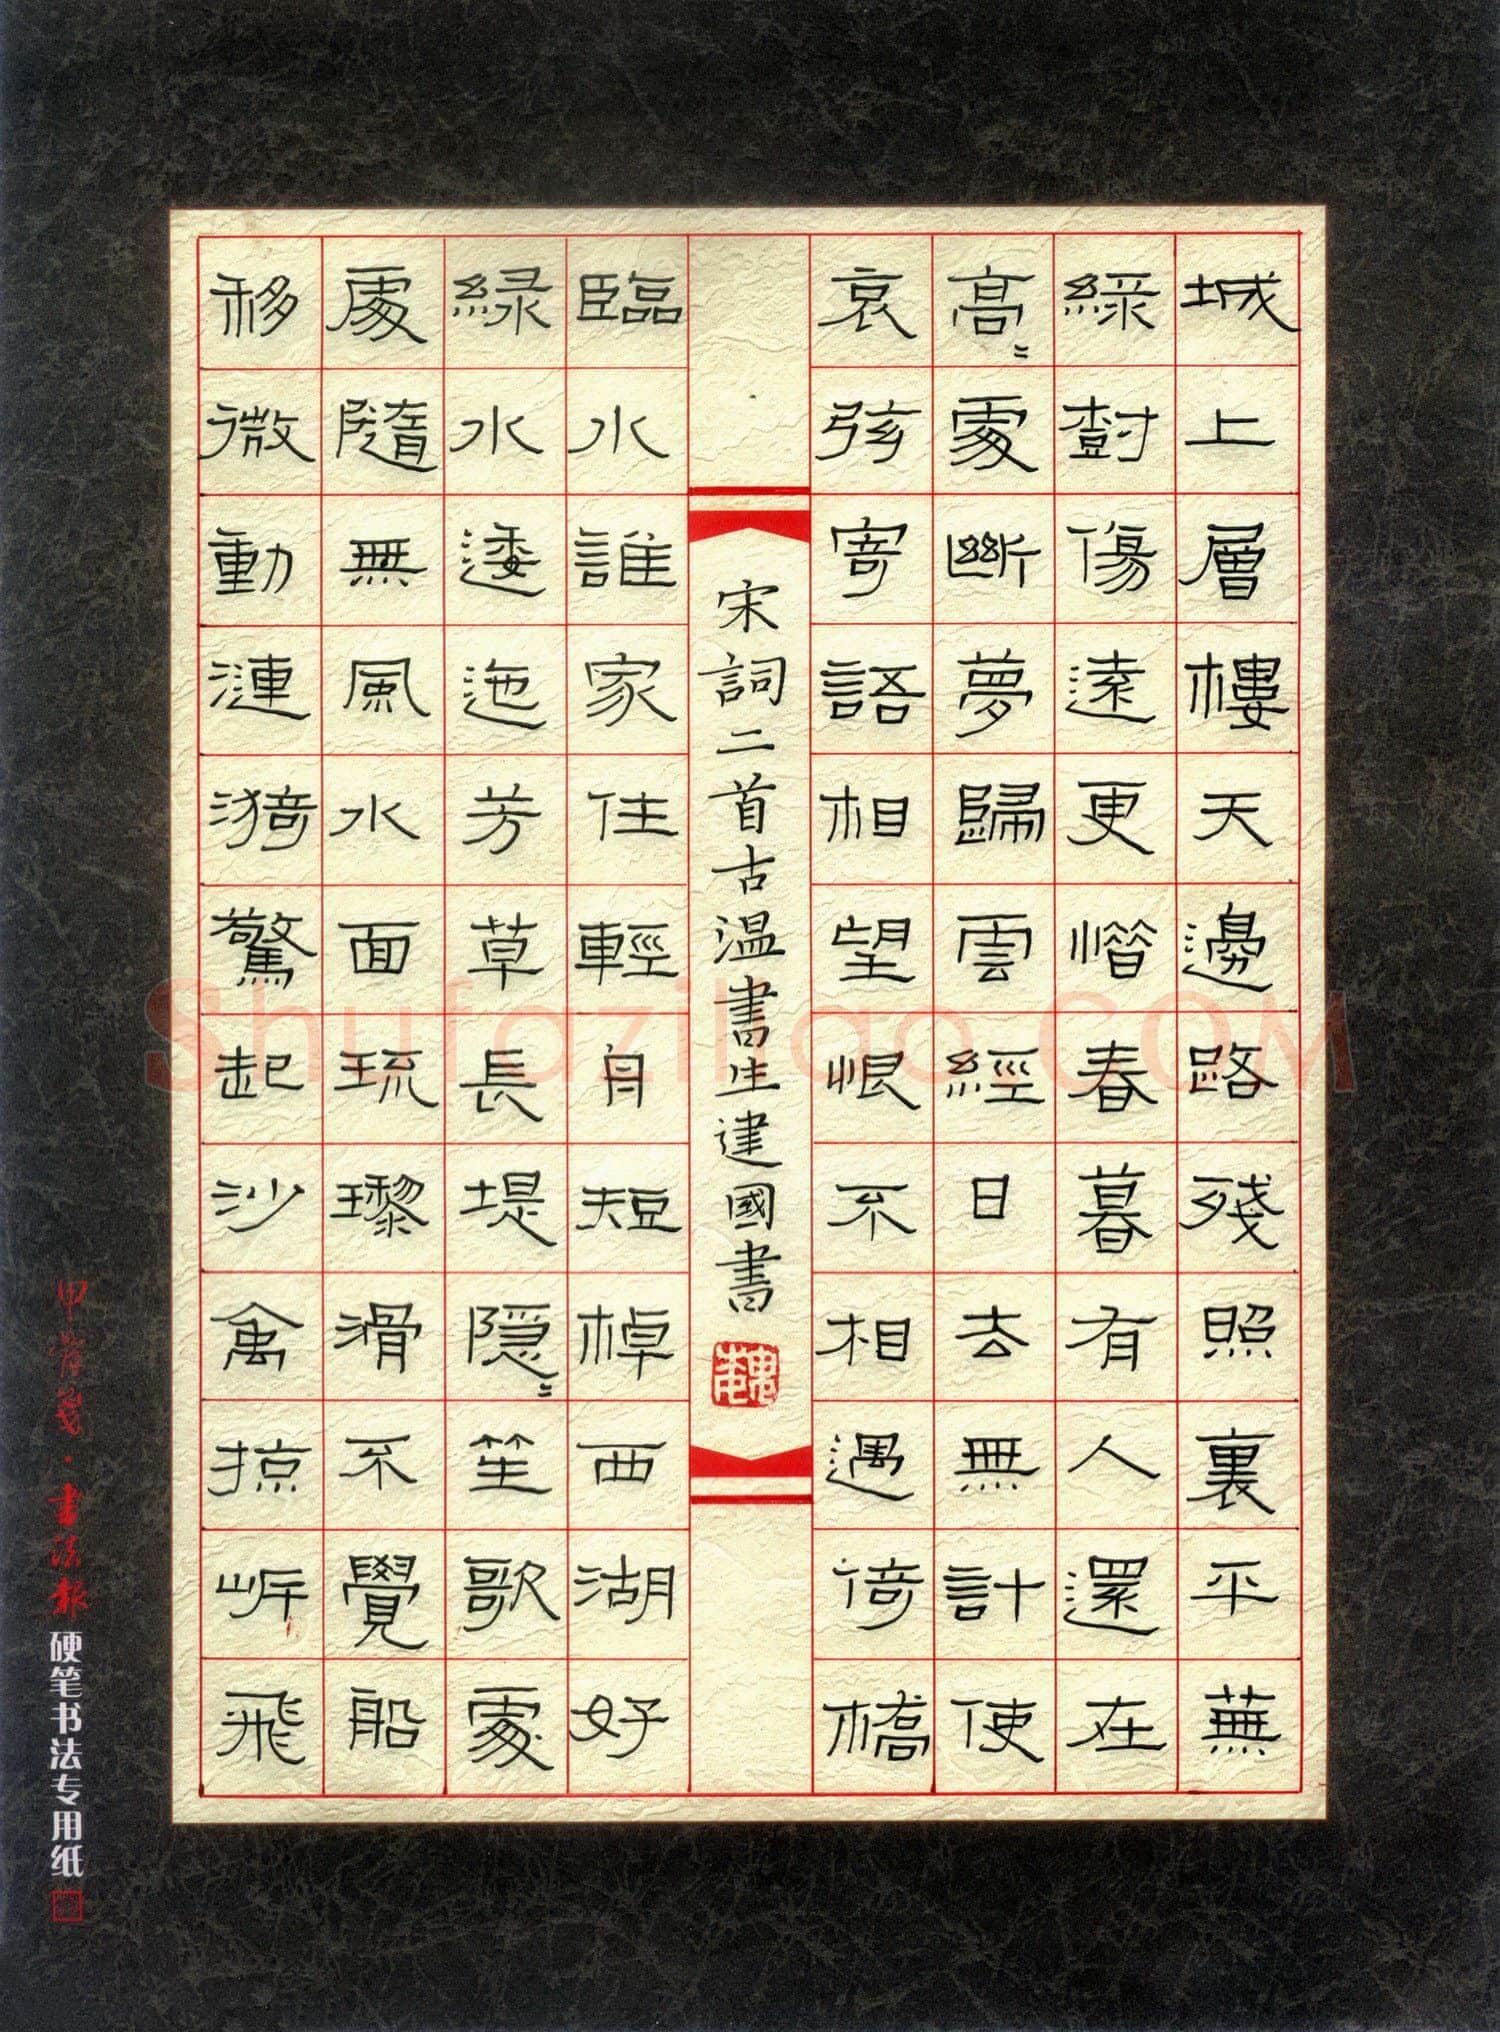 城上層樓天邊路殘照裏平蕪
綠樹傷遠更惜春暮有人還在
高〻處斷夢歸雲經日去無計使
哀弦寄語相望恨不相遇倚橋
宋詞二首古温書生建國書
臨水誰家住輕舟短棹西湖好
綠水逶迤芳草長堤隱〻笙歌處
處隨無風水面琉璃滑不覺船
移微動漣漪驚起沙禽掠岸飛
甲骨箋·書法報硬笔书法专用纸
Shufaziliao.COM